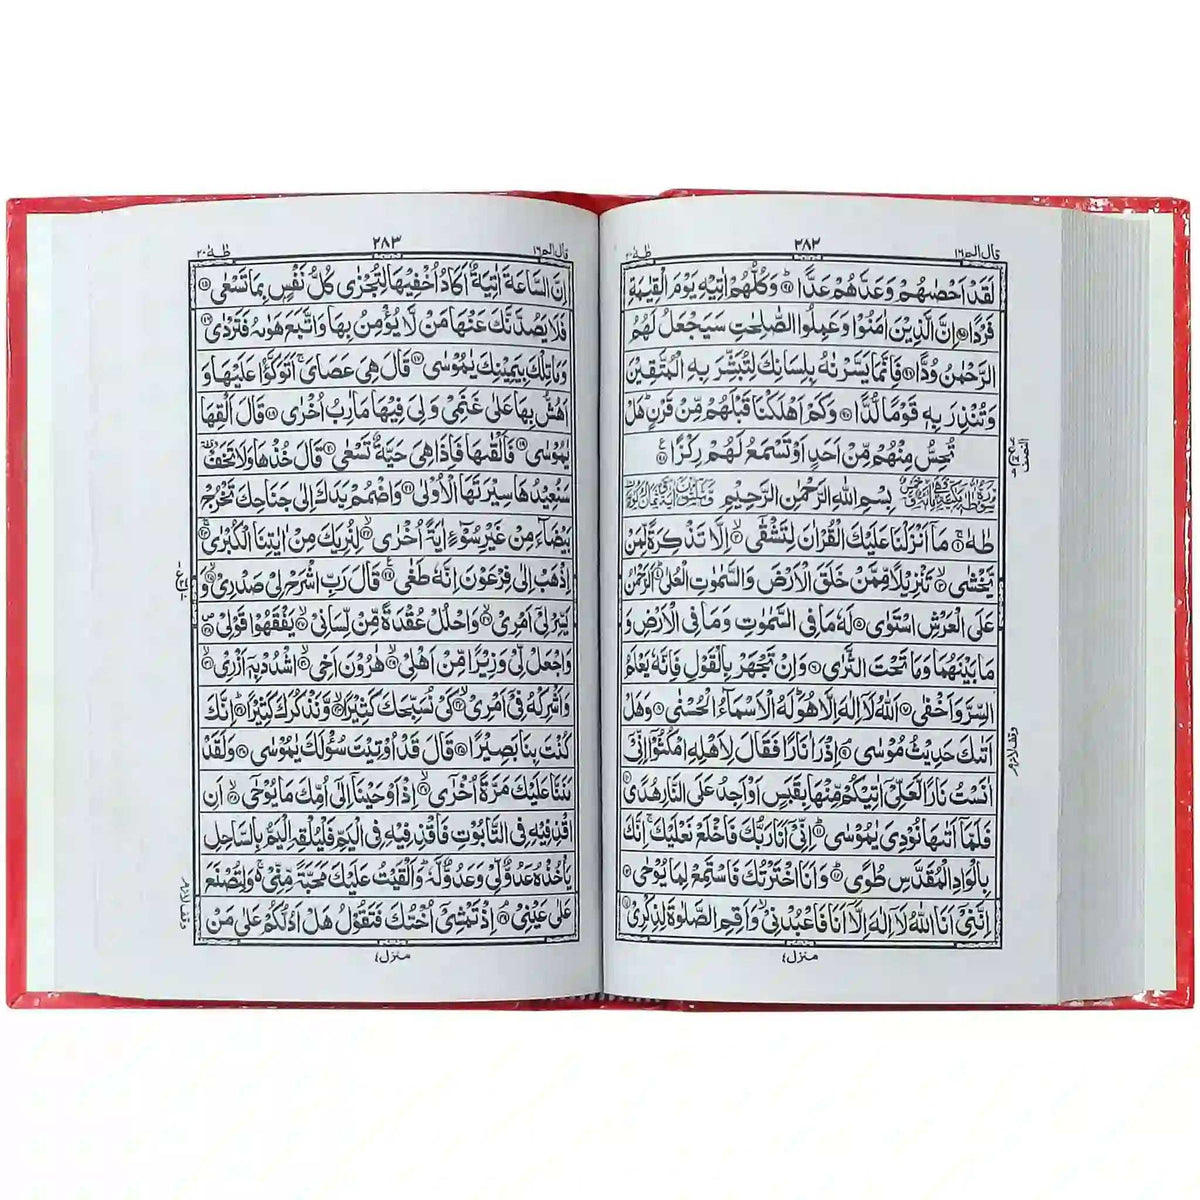 قال الم ١٦
٢٨٢
طٰهٰ ٢٠
لَقَدْ اَحْصٰىهُمْ وَعَدَّهُمْ عَدًّا ﴿٩٤﴾ وَكُلُّهُمْ اٰتِيْهِ يَوْمَ الْقِيٰمَةِ
فَرْدًا ﴿٩٥﴾ اِنَّ الَّذِيْنَ اٰمَنُوْا وَعَمِلُوا الصّٰلِحٰتِ سَيَجْعَلُ لَهُمُ
الرَّحْمٰنُ وُدًّا ﴿٩٦﴾ فَاِنَّمَا يَسَّرْنٰهُ بِلِسَانِكَ لِتُبَشِّرَ بِهِ الْمُتَّقِيْنَ
وَتُنْذِرَ بِهٖ قَوْمًا لُّدًّا ﴿٩٧﴾ وَكَمْ اَهْلَكْنَا قَبْلَهُمْ مِّنْ قَرْنٍ ؕ هَلْ
تُحِسُّ مِنْهُمْ مِّنْ اَحَدٍ اَوْ تَسْمَعُ لَهُمْ رِكْزًا ﴿٩٨﴾
بِسْمِ اللّٰهِ الرَّحْمٰنِ الرَّحِيْمِ
طٰهٰ ﴿١﴾ مَاۤ اَنْزَلْنَا عَلَيْكَ الْقُرْاٰنَ لِتَشْقٰۤى ﴿٢﴾ اِلَّا تَذْكِرَةً لِّمَنْ
يَّخْشٰى ﴿٣﴾ تَنْزِيْلًا مِّمَّنْ خَلَقَ الْاَرْضَ وَالسَّمٰوٰتِ الْعُلٰى ﴿٤﴾ اَلرَّحْمٰنُ
عَلَى الْعَرْشِ اسْتَوٰى ﴿٥﴾ لَهٗ مَا فِى السَّمٰوٰتِ وَمَا فِى الْاَرْضِ وَ
مَا بَيْنَهُمَا وَمَا تَحْتَ الثَّرٰى ﴿٦﴾ وَاِنْ تَجْهَرْ بِالْقَوْلِ فَاِنَّهٗ يَعْلَمُ
السِّرَّ وَاَخْفٰى ﴿٧﴾ اَللّٰهُ لَاۤ اِلٰهَ اِلَّا هُوَ ؕ لَهُ الْاَسْمَآءُ الْحُسْنٰى ﴿٨﴾ وَهَلْ
اَتٰىكَ حَدِيْثُ مُوْسٰى ﴿٩﴾ اِذْ رَاٰ نَارًا فَقَالَ لِاَهْلِهِ امْكُثُوْۤا اِنِّىْۤ
اٰنَسْتُ نَارًا لَّعَلِّىْۤ اٰتِيْكُمْ مِّنْهَا بِقَبَسٍ اَوْ اَجِدُ عَلَى النَّارِ هُدًى ﴿١٠﴾
فَلَمَّاۤ اَتٰىهَا نُوْدِىَ يٰمُوْسٰى ﴿١١﴾ اِنِّىْۤ اَنَا رَبُّكَ فَاخْلَعْ نَعْلَيْكَ ۚ اِنَّكَ
بِالْوَادِ الْمُقَدَّسِ طُوًى ﴿١٢﴾ وَاَنَا اخْتَرْتُكَ فَاسْتَمِعْ لِمَا يُوْحٰى ﴿١٣﴾
اِنَّنِىْۤ اَنَا اللّٰهُ لَاۤ اِلٰهَ اِلَّاۤ اَنَا فَاعْبُدْنِىْ ۙ وَاَقِمِ الصَّلٰوةَ لِذِكْرِىْ ﴿١٤﴾
منزل ٤
قال الم ١٦
٢٨٣
طٰهٰ ٢٠
اِنَّ السَّاعَةَ اٰتِيَةٌ اَكَادُ اُخْفِيْهَا لِتُجْزٰى كُلُّ نَفْسٍۭ بِمَا تَسْعٰى ﴿١٥﴾
فَلَا يَصُدَّنَّكَ عَنْهَا مَنْ لَّا يُؤْمِنُ بِهَا وَاتَّبَعَ هَوٰىهُ فَتَرْدٰى ﴿١٦﴾
وَمَا تِلْكَ بِيَمِيْنِكَ يٰمُوْسٰى ﴿١٧﴾ قَالَ هِىَ عَصَاىَ ۚ اَتَوَكَّؤُا عَلَيْهَا وَ
اَهُشُّ بِهَا عَلٰى غَنَمِىْ وَلِىَ فِيْهَا مَاٰرِبُ اُخْرٰى ﴿١٨﴾ قَالَ اَلْقِهَا
يٰمُوْسٰى ﴿١٩﴾ فَاَلْقٰىهَا فَاِذَا هِىَ حَيَّةٌ تَسْعٰى ﴿٢٠﴾ قَالَ خُذْهَا وَلَا تَخَفْ
سَنُعِيْدُهَا سِيْرَتَهَا الْاُوْلٰى ﴿٢١﴾ وَاضْمُمْ يَدَكَ اِلٰى جَنَاحِكَ تَخْرُجْ
بَيْضَآءَ مِنْ غَيْرِ سُوْٓءٍ اٰيَةً اُخْرٰى ﴿٢٢﴾ لِنُرِيَكَ مِنْ اٰيٰتِنَا الْكُبْرٰى ﴿٢٣﴾
اِذْهَبْ اِلٰى فِرْعَوْنَ اِنَّهٗ طَغٰى ﴿٢٤﴾ قَالَ رَبِّ اشْرَحْ لِىْ صَدْرِىْ ﴿٢٥﴾ وَ
يَسِّرْ لِىْۤ اَمْرِىْ ﴿٢٦﴾ وَاحْلُلْ عُقْدَةً مِّنْ لِّسَانِىْ ﴿٢٧﴾ يَفْقَهُوْا قَوْلِىْ ﴿٢٨﴾
وَاجْعَلْ لِّىْ وَزِيْرًا مِّنْ اَهْلِىْ ﴿٢٩﴾ هٰرُوْنَ اَخِى ﴿٣٠﴾ اشْدُدْ بِهٖۤ اَزْرِىْ ﴿٣١﴾
وَاَشْرِكْهُ فِىْۤ اَمْرِىْ ﴿٣٢﴾ كَىْ نُسَبِّحَكَ كَثِيْرًا ﴿٣٣﴾ وَّنَذْكُرَكَ كَثِيْرًا ﴿٣٤﴾ اِنَّكَ
كُنْتَ بِنَا بَصِيْرًا ﴿٣٥﴾ قَالَ قَدْ اُوْتِيْتَ سُؤْلَكَ يٰمُوْسٰى ﴿٣٦﴾ وَلَقَدْ
مَنَنَّا عَلَيْكَ مَرَّةً اُخْرٰۤى ﴿٣٧﴾ اِذْ اَوْحَيْنَاۤ اِلٰۤى اُمِّكَ مَا يُوْحٰۤى ﴿٣٨﴾ اَنِ
اقْذِفِيْهِ فِى التَّابُوْتِ فَاقْذِفِيْهِ فِى الْيَمِّ فَلْيُلْقِهِ الْيَمُّ بِالسَّاحِلِ
يَاْخُذْهُ عَدُوٌّ لِّىْ وَعَدُوٌّ لَّهٗ ؕ وَاَلْقَيْتُ عَلَيْكَ مَحَبَّةً مِّنِّىْ ۚ وَلِتُصْنَعَ
عَلٰى عَيْنِىْ ﴿٣٩﴾ اِذْ تَمْشِىْۤ اُخْتُكَ فَتَقُوْلُ هَلْ اَدُلُّكُمْ عَلٰى مَنْ
منزل ٤